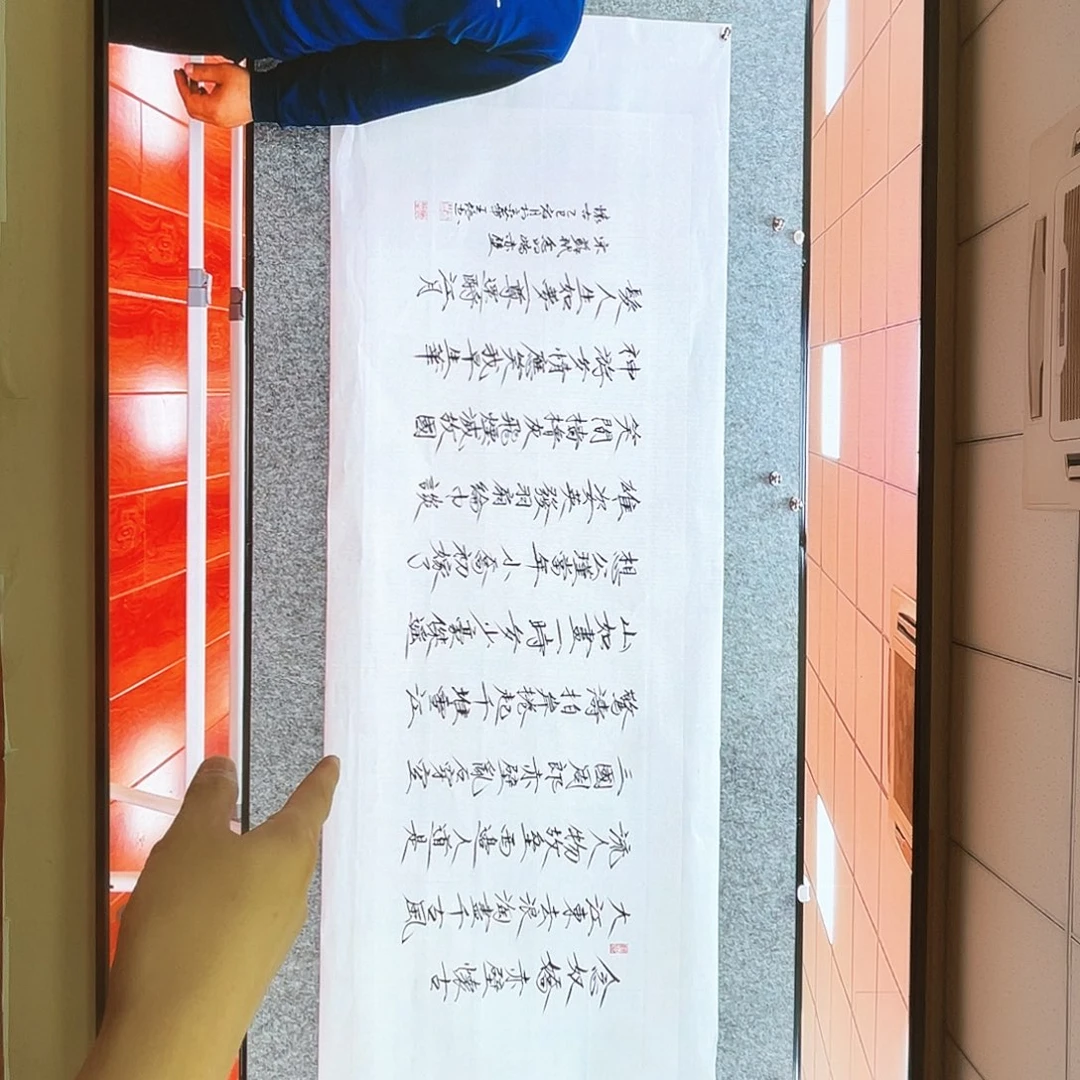 念奴嬌赤壁懷古
大江東去浪淘盡千古風
流人物故壘西邊人道是
三國周郎赤壁亂石穿空
驚濤拍岸捲起千堆雪江
山如畫一時多少豪傑遥
想公瑾當年小喬初嫁了
雄姿英發羽扇綸巾談
笑間檣櫓灰飛煙滅故國
神游多情應笑我早生華
髮人生如夢一尊還酹江月
宋蘇軾念奴嬌赤壁
懷古乙巳